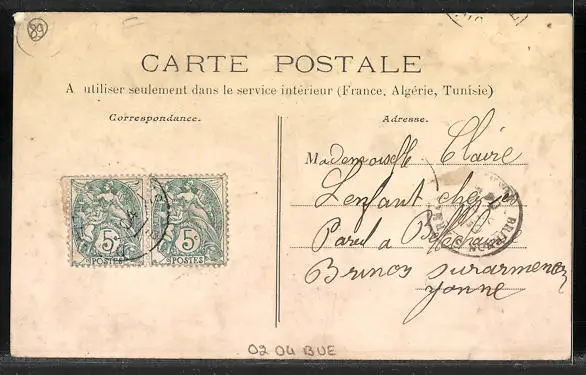 89
CARTE POSTALE
A utiliser seulement dans le service intérieur (France, Algérie, Tunisie)
Correspondance.
Adresse.
Mademoiselle Claire
Lenfant chez
a
Brinon surarmencon
yonne
5c 5c
POSTES POSTES
BRINON
02 04 BUE